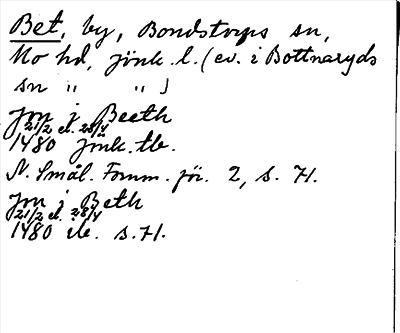 Bet, by, Bondstorps sn,
Mo hd, Jönk. l. (ev. i Bottnaryds
sn " " )
Jon j Beeth
21/2 el. 28/4
1480 Jönk. tb.
N. Smål. Fornm. för. 2, s. 71.
Jon j Beth
21/2 el. 28/4
1480 ib. s. 71.